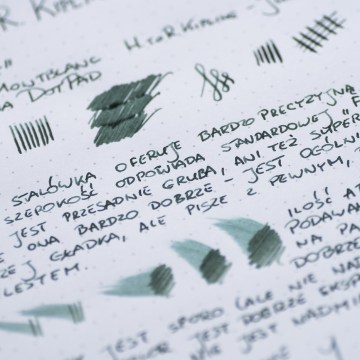 R KIPLI
H TOR KIPLING - J
MONTBLANC
A DOTPAD
STALÓWKA OFERUJE BARDZO PRECYZYJNĄ
SZEROKOŚĆ ODPOWIADA STANDARDOWEJ "F
JEST PRZESADNIE GRUBA, ANI TEŻ SUPER
E ONA BARDZO DOBRZE - JEST OGÓLN
ZEJ GŁADKA, ALE PISZE Z PEWNYM,
LESTEM.
ILOŚĆ A
PODAWAN
NA PA
JEST SPORO (ALE NIE NAD
JEST DOBRZE
NIE JEST NADMI